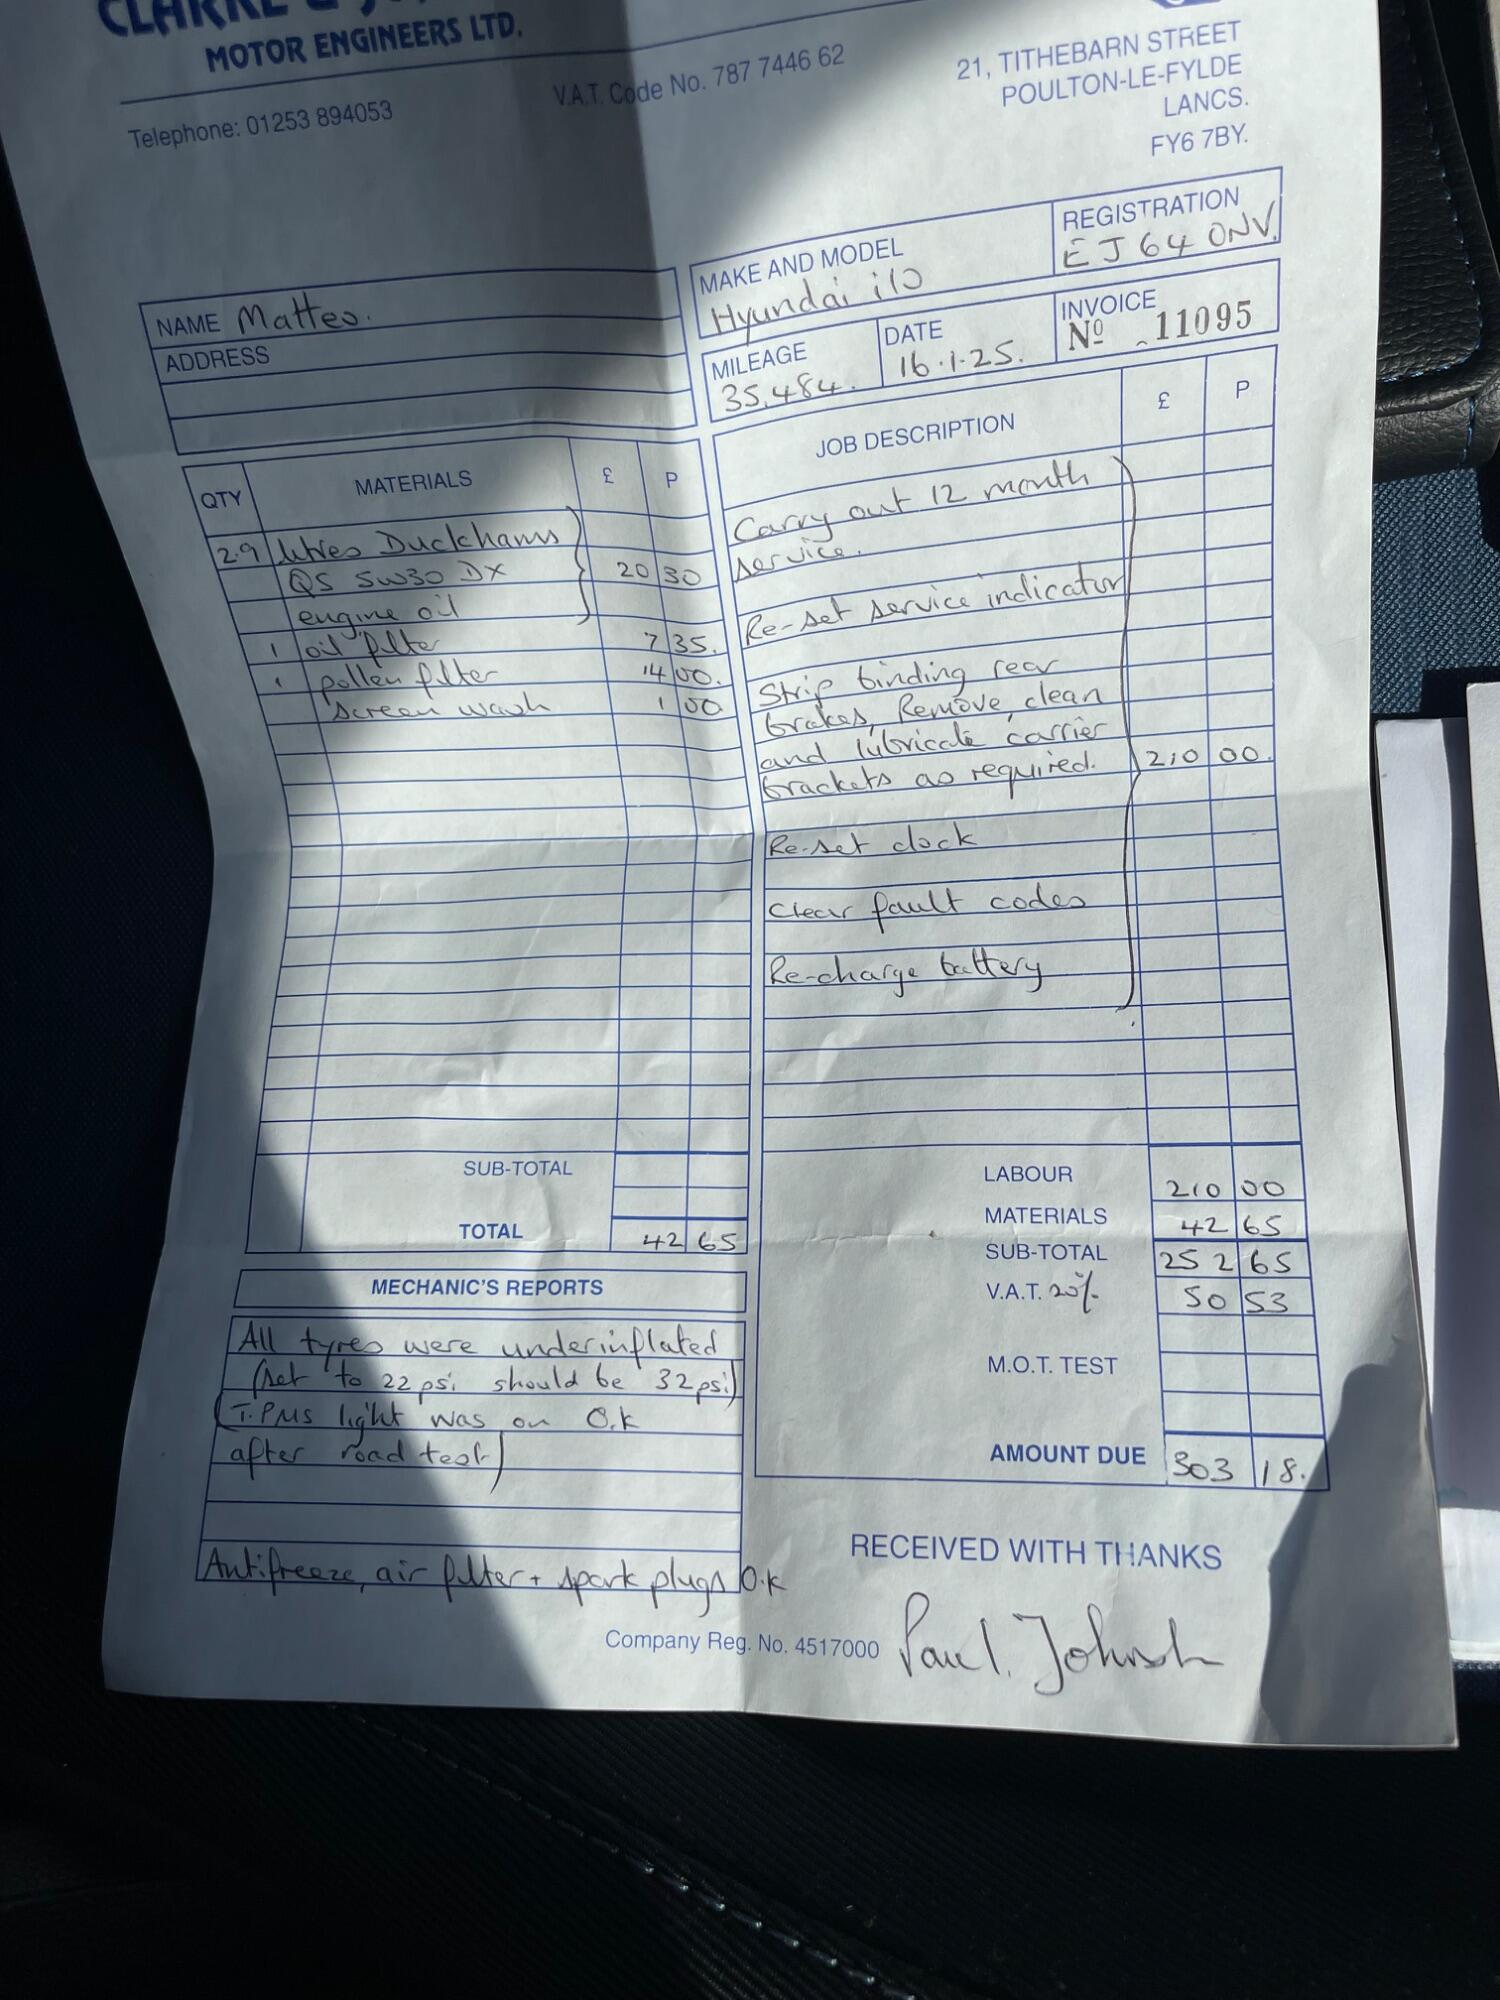 CLARKE &
MOTOR ENGINEERS LTD.
Telephone: 01253 894053
V.A.T. Code No. 787 7446 62
21, TITHEBARN STREET
POULTON-LE-FYLDE
LANCS.
FY6 7BY.
NAME Matteo.
ADDRESS
MAKE AND MODEL
Hyundai i10
REGISTRATION
EJ64 ONV.
MILEAGE
35,484.
DATE
16.1.25.
INVOICE
Nº 11095
QTY MATERIALS £ P
2.9 litres Duckhams
QS 5W30 DX 20 30
engine oil
1 oil filter 7 35.
1 pollen filter 14 00.
screen wash 1 00
SUB-TOTAL
TOTAL 42 65
JOB DESCRIPTION £ P
Carry out 12 month
service.
Re-set service indicator
Strip binding rear
brakes, Remove, clean
and lubricate carrier
brackets as required. 210 00.
Re-set clock
Clear fault codes
Re-charge battery
LABOUR 210 00
MATERIALS 42 65
SUB-TOTAL 252 65
V.A.T. 20% 50 53
M.O.T. TEST
AMOUNT DUE 303 18.
MECHANIC'S REPORTS
All tyres were underinflated
(set to 22psi should be 32psi)
(T.PMS light was on O.K
after road test)
Antifreeze, air filter + spark plugs O.K
RECEIVED WITH THANKS
Company Reg. No. 4517000
Paul